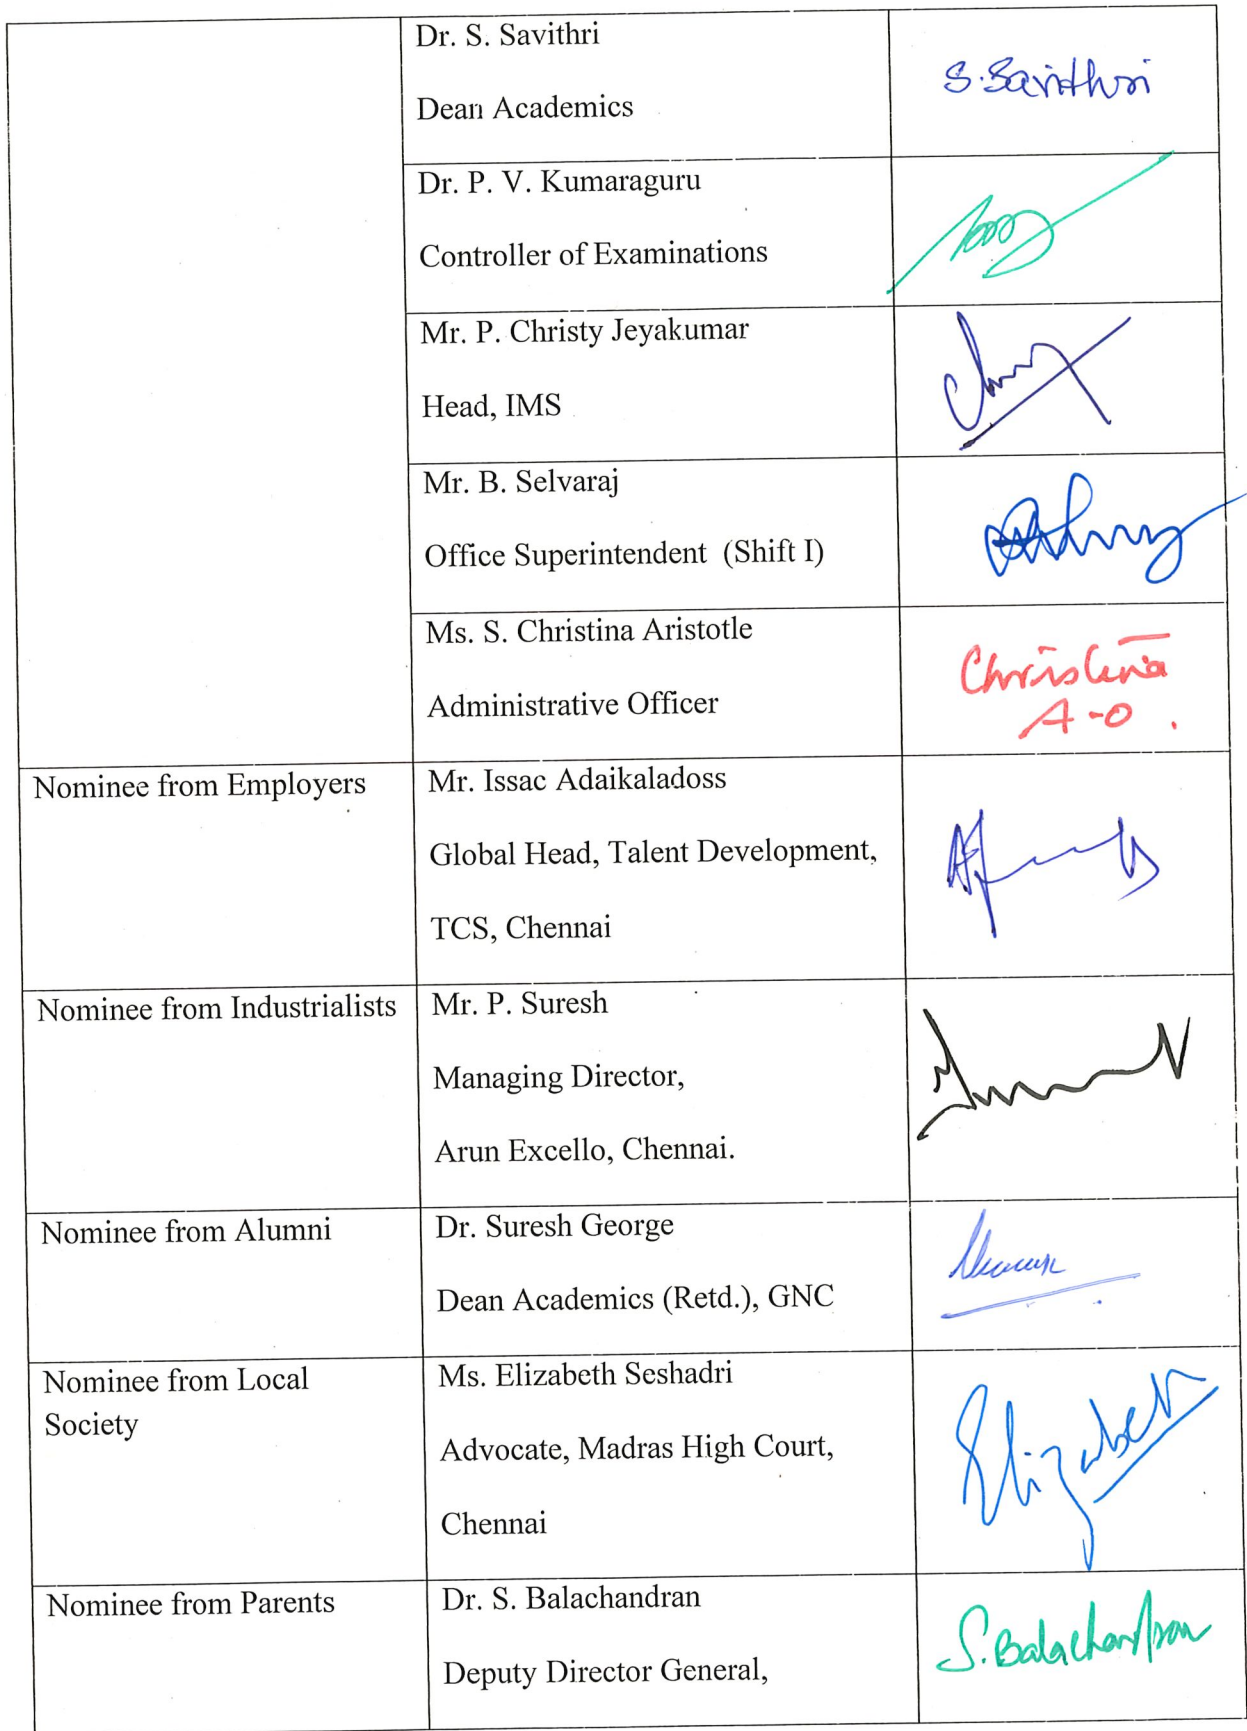 Dr. S. Savithri
S. Savithri
Dean Academics
Dr. P. V. Kumaraguru
Controller of Examinations
Mr. P. Christy Jeyakumar
Head, IMS
Mr. B. Selvaraj
Office Superintendent (Shift I)
Ms. S. Christina Aristotle
Christina
Administrative Officer
A-O.
Nominee from Employers
Mr. Issac Adaikaladoss
Global Head, Talent Development,
TCS, Chennai
Nominee from Industrialists
Mr. P. Suresh
Managing Director,
Arun Excello, Chennai.
Nominee from Alumni
Dr. Suresh George
Dean Academics (Retd.), GNC
Nominee from Local
Society
Ms. Elizabeth Seshadri
Advocate, Madras High Court,
Chennai
Elizabeth
Nominee from Parents
Dr. S. Balachandran
Deputy Director General,
S. Balachandran